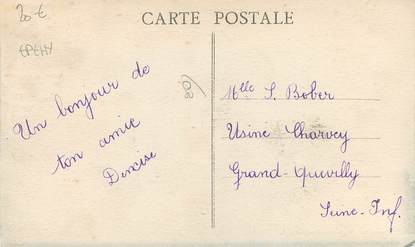 20 €
EPEHY
CARTE POSTALE
Un bonjour de
ton amie
Denise
Mlle S. Bober
Usine Charvey
Grand-Quevilly
Seine-Inf.